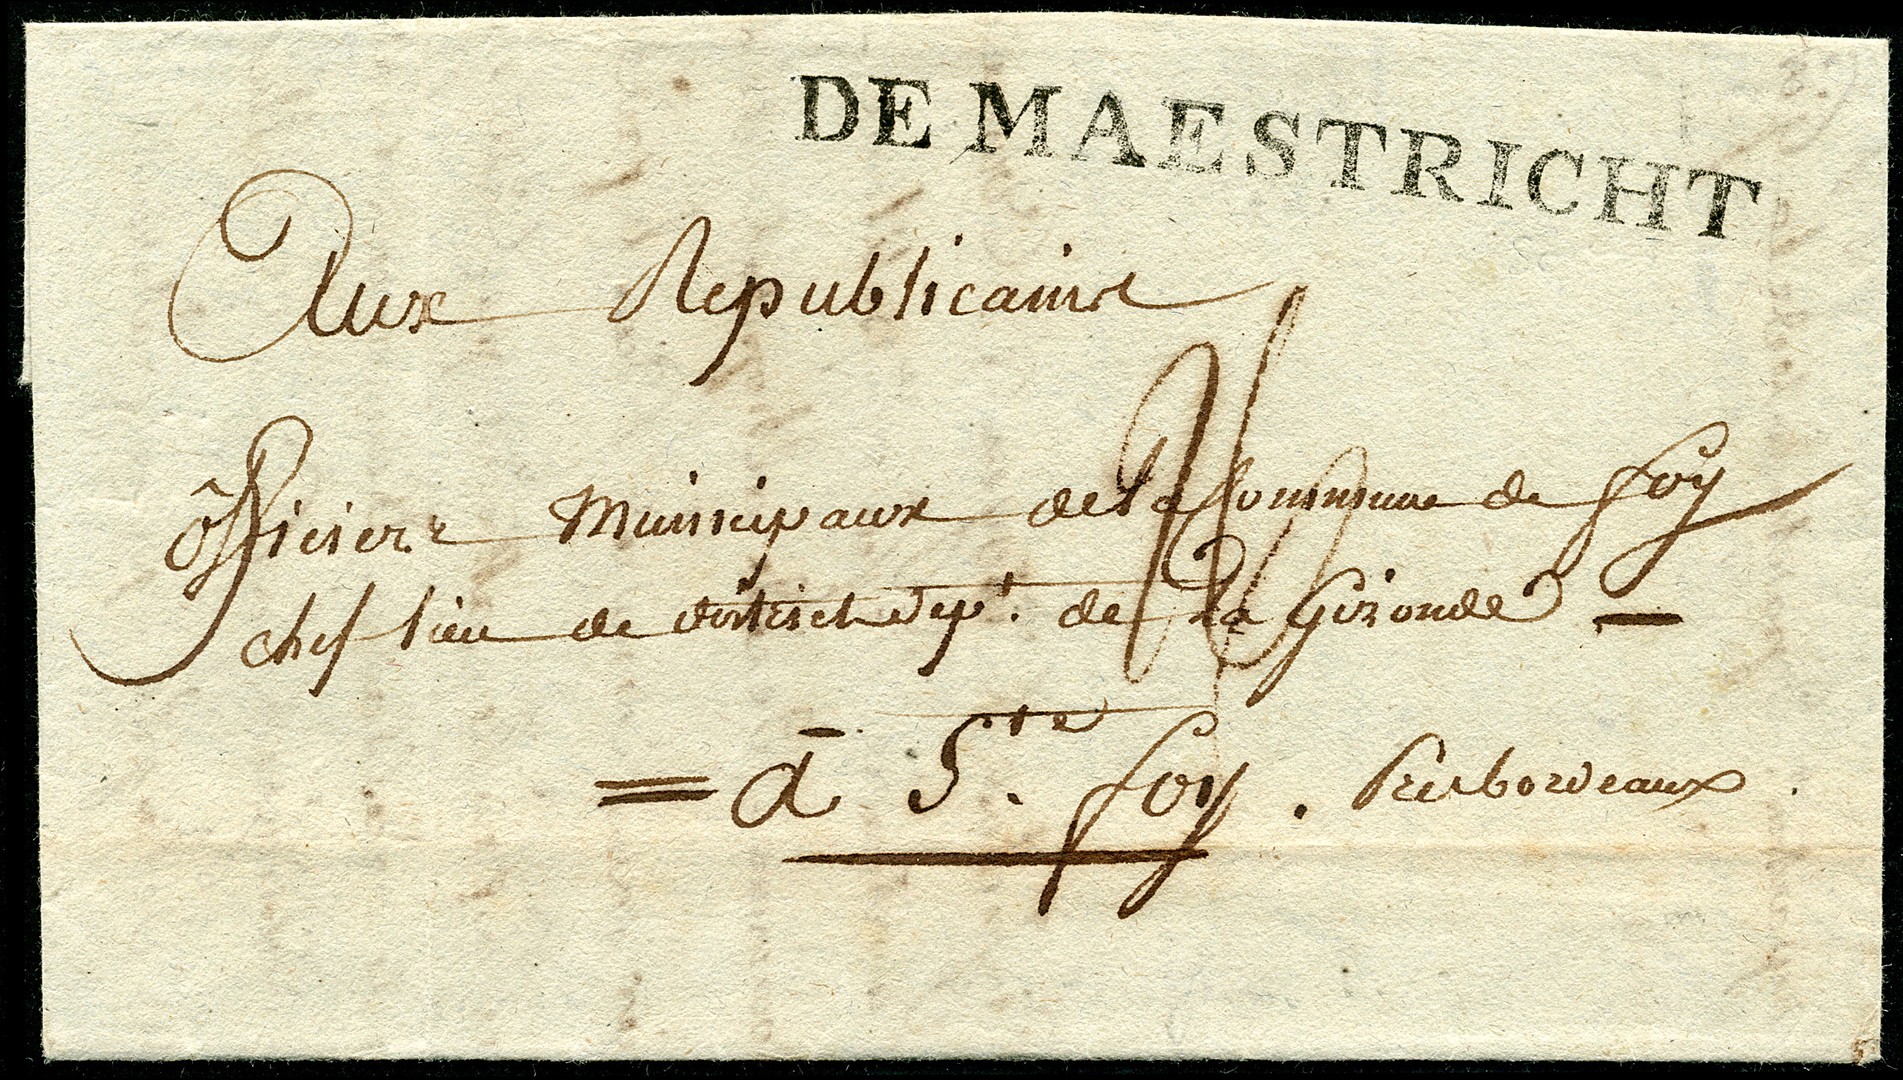 DE MAESTRICHT
Aux Republicains
officiers Municipaux de la Commune de foy
chef lieu de district Dept. de La Gironde
= à Ste. foy . Près bordeaux .